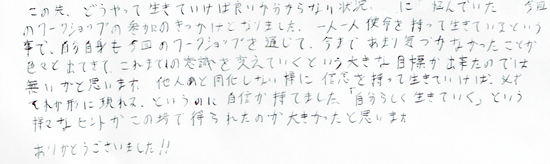 この先、どうやって生きていけば良いか分からない状況 に 悩んでいた 今回
のワークショップの参加のきっかけとなりました。一人一人使命を持って生きているという
事で、自分自身も今回のワークショップを通じて、今まであまり気づかなかったことが
色々と出てきて、これまでの意識を変えていくという大きな目標が出来たのでは
無いかと思います。他人と同化しない様に信念を持って生きていけば、必ず
それが形に現れる、というのに自信が持てました。「自分らしく生きていく」という
様々なヒントがこの場で得られたのが大きかったと思います
ありがとうございました!!